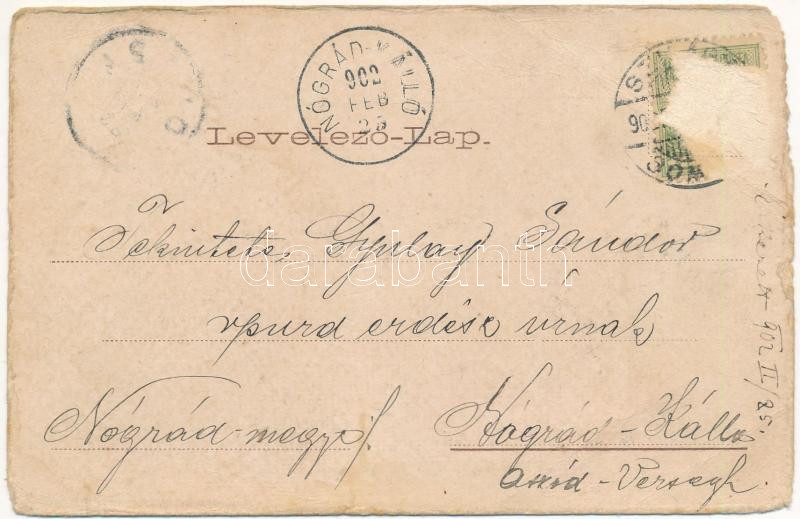 NÓGRÁD-KÁLLÓ
902
FEB
25
90
Levelező-Lap.
Tekintetes Gyulay Sándor
erdész urnak
Nógrád-megye.
Nógrád-Kálló
Aszód-Verseg.
902 II/25.
darabanth